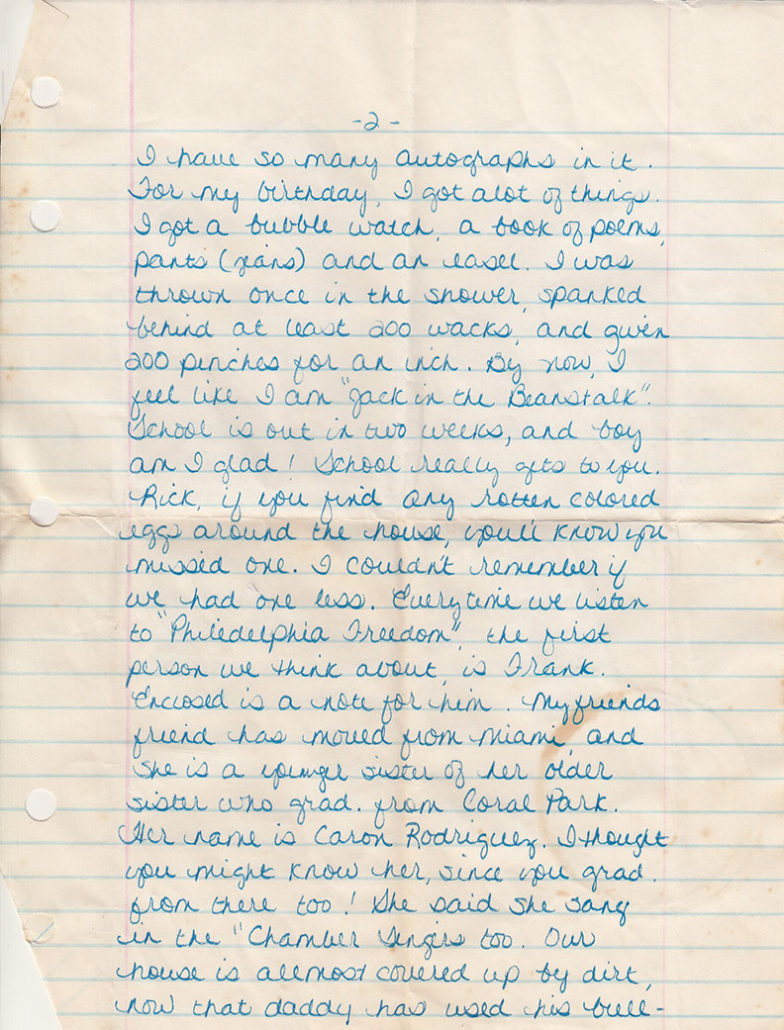 -2-
I have so many autographs in it.
For my birthday, I got alot of things.
I got a bubble watch, a book of poems,
pants (jeans) and an easel. I was
thrown once in the shower, spanked
behind at least 200 wacks, and given
200 pinches for an inch. By now, I
feel like I am "Jack in the Beanstalk".
School is out in two weeks, and boy
am I glad! School really gets to you.
Rick, if you find any rotten colored
eggs around the house, you'll know you
missed one. I couldn't remember if
we had one less. Everytime we listen
to "Philedelphia Freedom", the first
person we think about, is Frank.
Enclosed is a note for him. My friends
friend has moved from Miami, and
she is a younger sister of her older
sister who grad. from Coral Park.
Her name is Caron Rodriguez. I thought
you might know her, since you grad.
from there too! She said she sang
in the "Chamber Singers too. Our
house is allmost covered up by dirt,
now that daddy has used his bull-